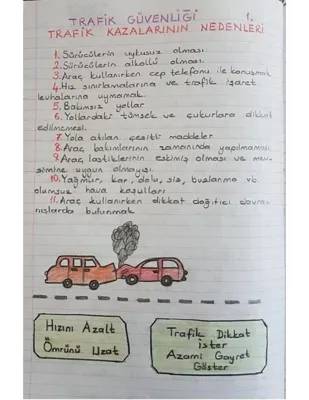 TRAFİK GÜVENLİĞİ 1.
TRAFİK KAZALARININ NEDENLERİ
1. Sürücülerin uykusuz olması
2. Sürücülerin alkollü olması
3. Araç kullanırken cep telefonu ile konuşmak
4. Hız sınırlamalarına ve trafik işaret
levhalarına uymamak
5. Bakımsız yollar
6. Yollardaki tümsek ve çukurlara dikkat
edilmemesi
7. Yola atılan çeşitli maddeler
8. Araç bakımlarının zamanında yapılmaması
9. Araç lastiklerinin eskimiş olması ve mev-
simine uygun olmayışı
10. Yağmur, kar, dolu, sis, buzlanma vb
olumsuz hava koşulları
11. Araç kullanırken dikkat dağıtıcı davra-
nışlarda bulunmak
Hızını Azalt
Ömrünü Uzat
Trafik Dikkat
İster
Azami Gayret
Göster